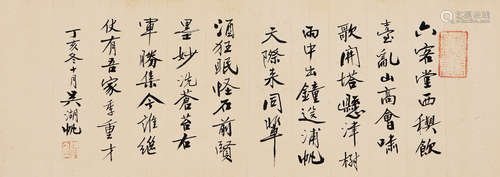 六客堂西禊飲
臺亂山高會嘯
歌開塔懸津樹
雨中出鐘送浦帆
天際來同輩
狂眠怪石前賢
墨妙洗蒼苔右
軍勝集今誰繼
仗有吾家季重才
丁亥冬十月吳湖帆